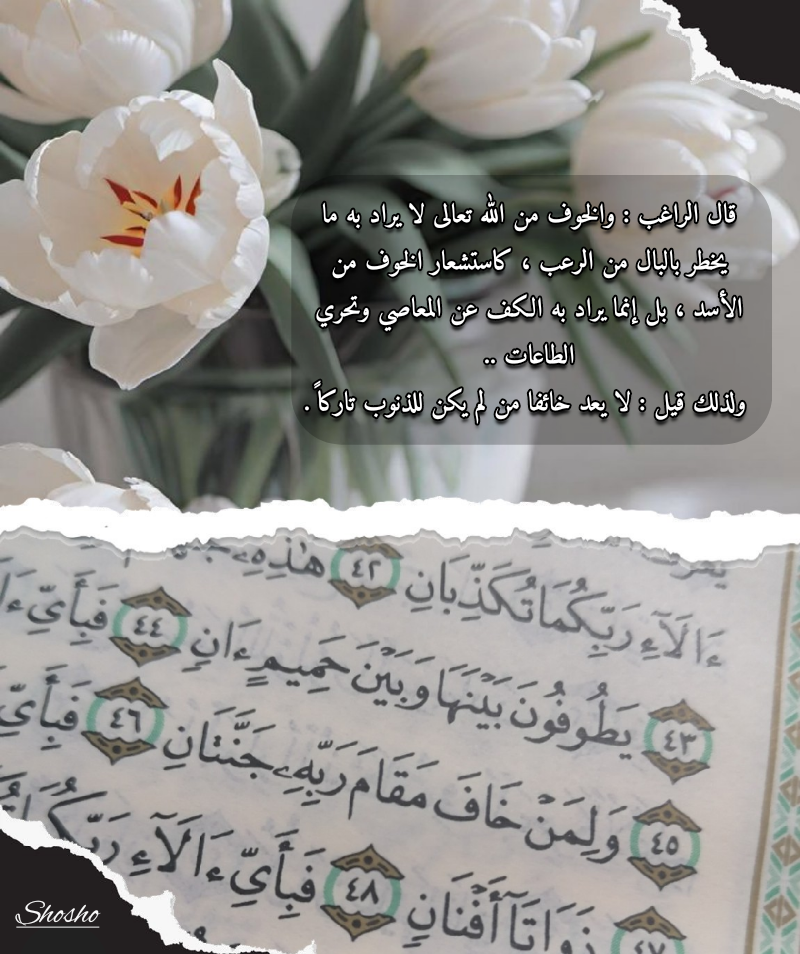 قال الراغب : والخوف من الله تعالى لا يراد به ما
يخطر بالبال من الرعب ، كاستشعار الخوف من
الأسد ، بل إنما يراد به الكف عن المعاصي وتحري
الطاعات ..
ولذلك قيل : لا يعد خائفا من لم يكن للذنوب تاركاً .
ءَالَآءِ رَبِّكُمَا تُكَذِّبَانِ ٤٢ هَٰذِهِۦ
٤٣ يَطُوفُونَ بَيْنَهَا وَبَيْنَ حَمِيمٍ ءَانٍ ٤٤ فَبِأَيِّ
٤٥ وَلِمَنْ خَافَ مَقَامَ رَبِّهِۦ جَنَّتَانِ ٤٦ فَبِأَيِّ
٤٧ ذَوَاتَآ أَفْنَانٍ ٤٨ فَبِأَيِّ ءَالَآءِ
Shosho